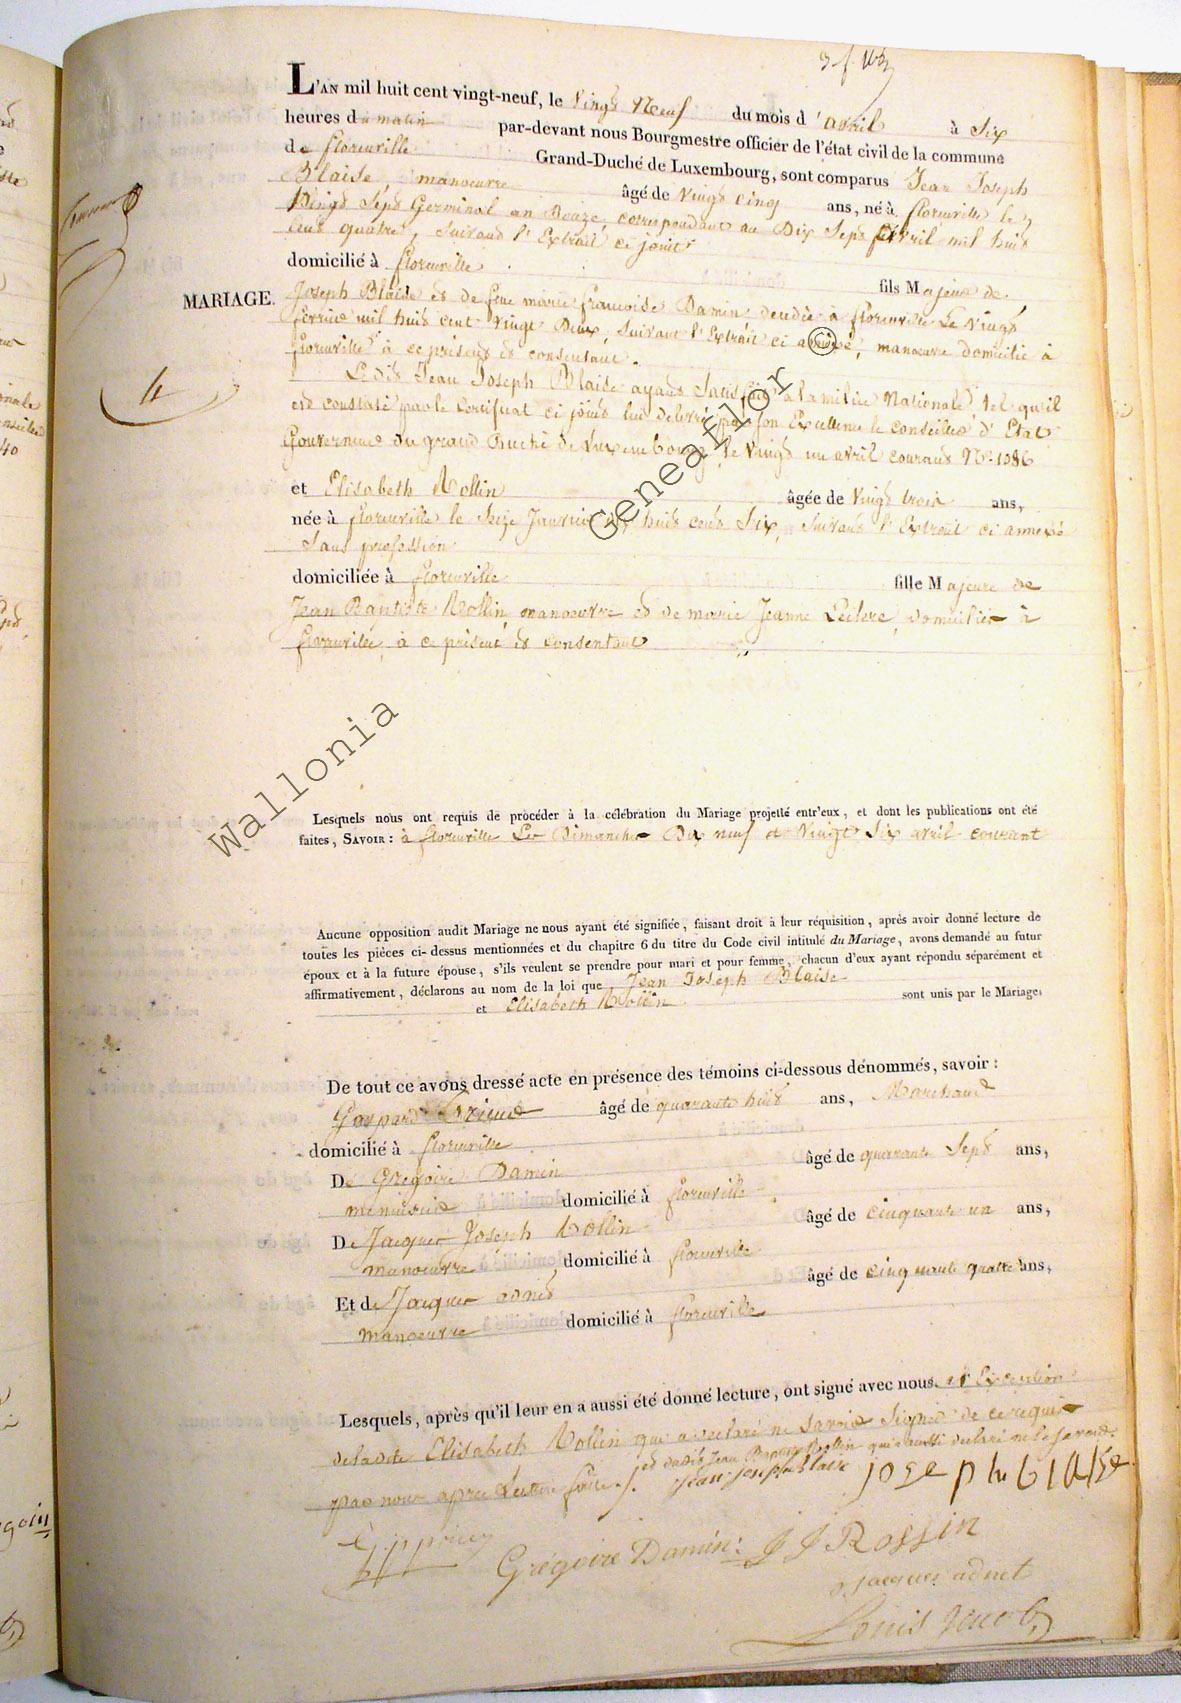 L'AN mil huit cent vingt-neuf, le Vingt Neuf du mois d'avril à Six
heures du matin par-devant nous Bourgmestre officier de l'état civil de la commune
de florenville Grand-Duché de Luxembourg, sont comparus Jean Joseph
Blaise, manoeuvre âgé de Vingt cinq ans, né à florenville le
Vingt Sept Germinal an Douze, correspondant au Dix Sept avril mil huit
Cent quatre, Suivant l'Extrait ci joint
domicilié à florenville
MARIAGE. fils Majeur de
Joseph Blaise et de feue marie francoise Damin décédée à florenville Le Vingt
fevrier mil huit cent Vingt Deux, Suivant l'Extrait ci annexé, manoeuvre domicilié à
florenville à ce présent et consentant.
Ledit Jean Joseph Blaise ayant Satisfait à la milice Nationale, tel qu'il
est constaté par le Certificat ci joint lui délivré par Son Excellence le conseiller d'Etat
Gouverneur du grand Duché de Luxembourg, le Vingt un avril courant N° 1086
4
et Elisabeth Rollin âgée de Vingt trois ans,
née à florenville le Seize Janvier mil huit cent Six, Suivant l'Extrait ci annexé
Sans profession
domiciliée à florenville fille Majeure de
Jean Baptiste Rollin, manoeuvre et de marie Jeanne Leclere, domicilies à
florenville, à ce présent et consentant
Lesquels nous ont requis de procéder à la célébration du Mariage projetté entr'eux, et dont les publications ont été
faites, SAVOIR : à florenville Les Dimanches Dix neuf et Vingt Six avril courant
Aucune opposition audit Mariage ne nous ayant été signifiée, faisant droit à leur réquisition, après avoir donné lecture de
toutes les pièces ci-dessus mentionnées et du chapitre 6 du titre du Code civil intitulé du Mariage, avons demandé au futur
époux et à la future épouse, s'ils veulent se prendre pour mari et pour femme, chacun d'eux ayant répondu séparément et
affirmativement, déclarons au nom de la loi que Jean Joseph Blaise
et Elisabeth Rollin sont unis par le Mariage.
De tout ce avons dressé acte en présence des témoins ci-dessous dénommés, savoir :
Gaspard âgé de quarante huit ans, Marchand
domicilié à florenville
De Gregoire Damin âgé de quarante Sept ans,
menuisier domicilié à florenville
De Jacques Joseph Rollin âgé de cinquante un ans,
manoeuvre, domicilié à florenville
Et de Jacques adnet âgé de cinquante quatre ans,
manoeuvre domicilié à florenville
Lesquels, après qu'il leur en a aussi été donné lecture, ont signé avec nous à l'Exception
deladite Elisabeth Rollin qui a déclaré ne Savoir Signer de ce requise
et dudit Jean Baptiste Rollin qui a aussi déclaré ne le Savoir.
par nous après Lecture faite.
jean joseph blaise joseph blaise
Grégoire Damin J J Rossin
jacques adnet
Louis Jacob
Wallonia Geneaflor ©